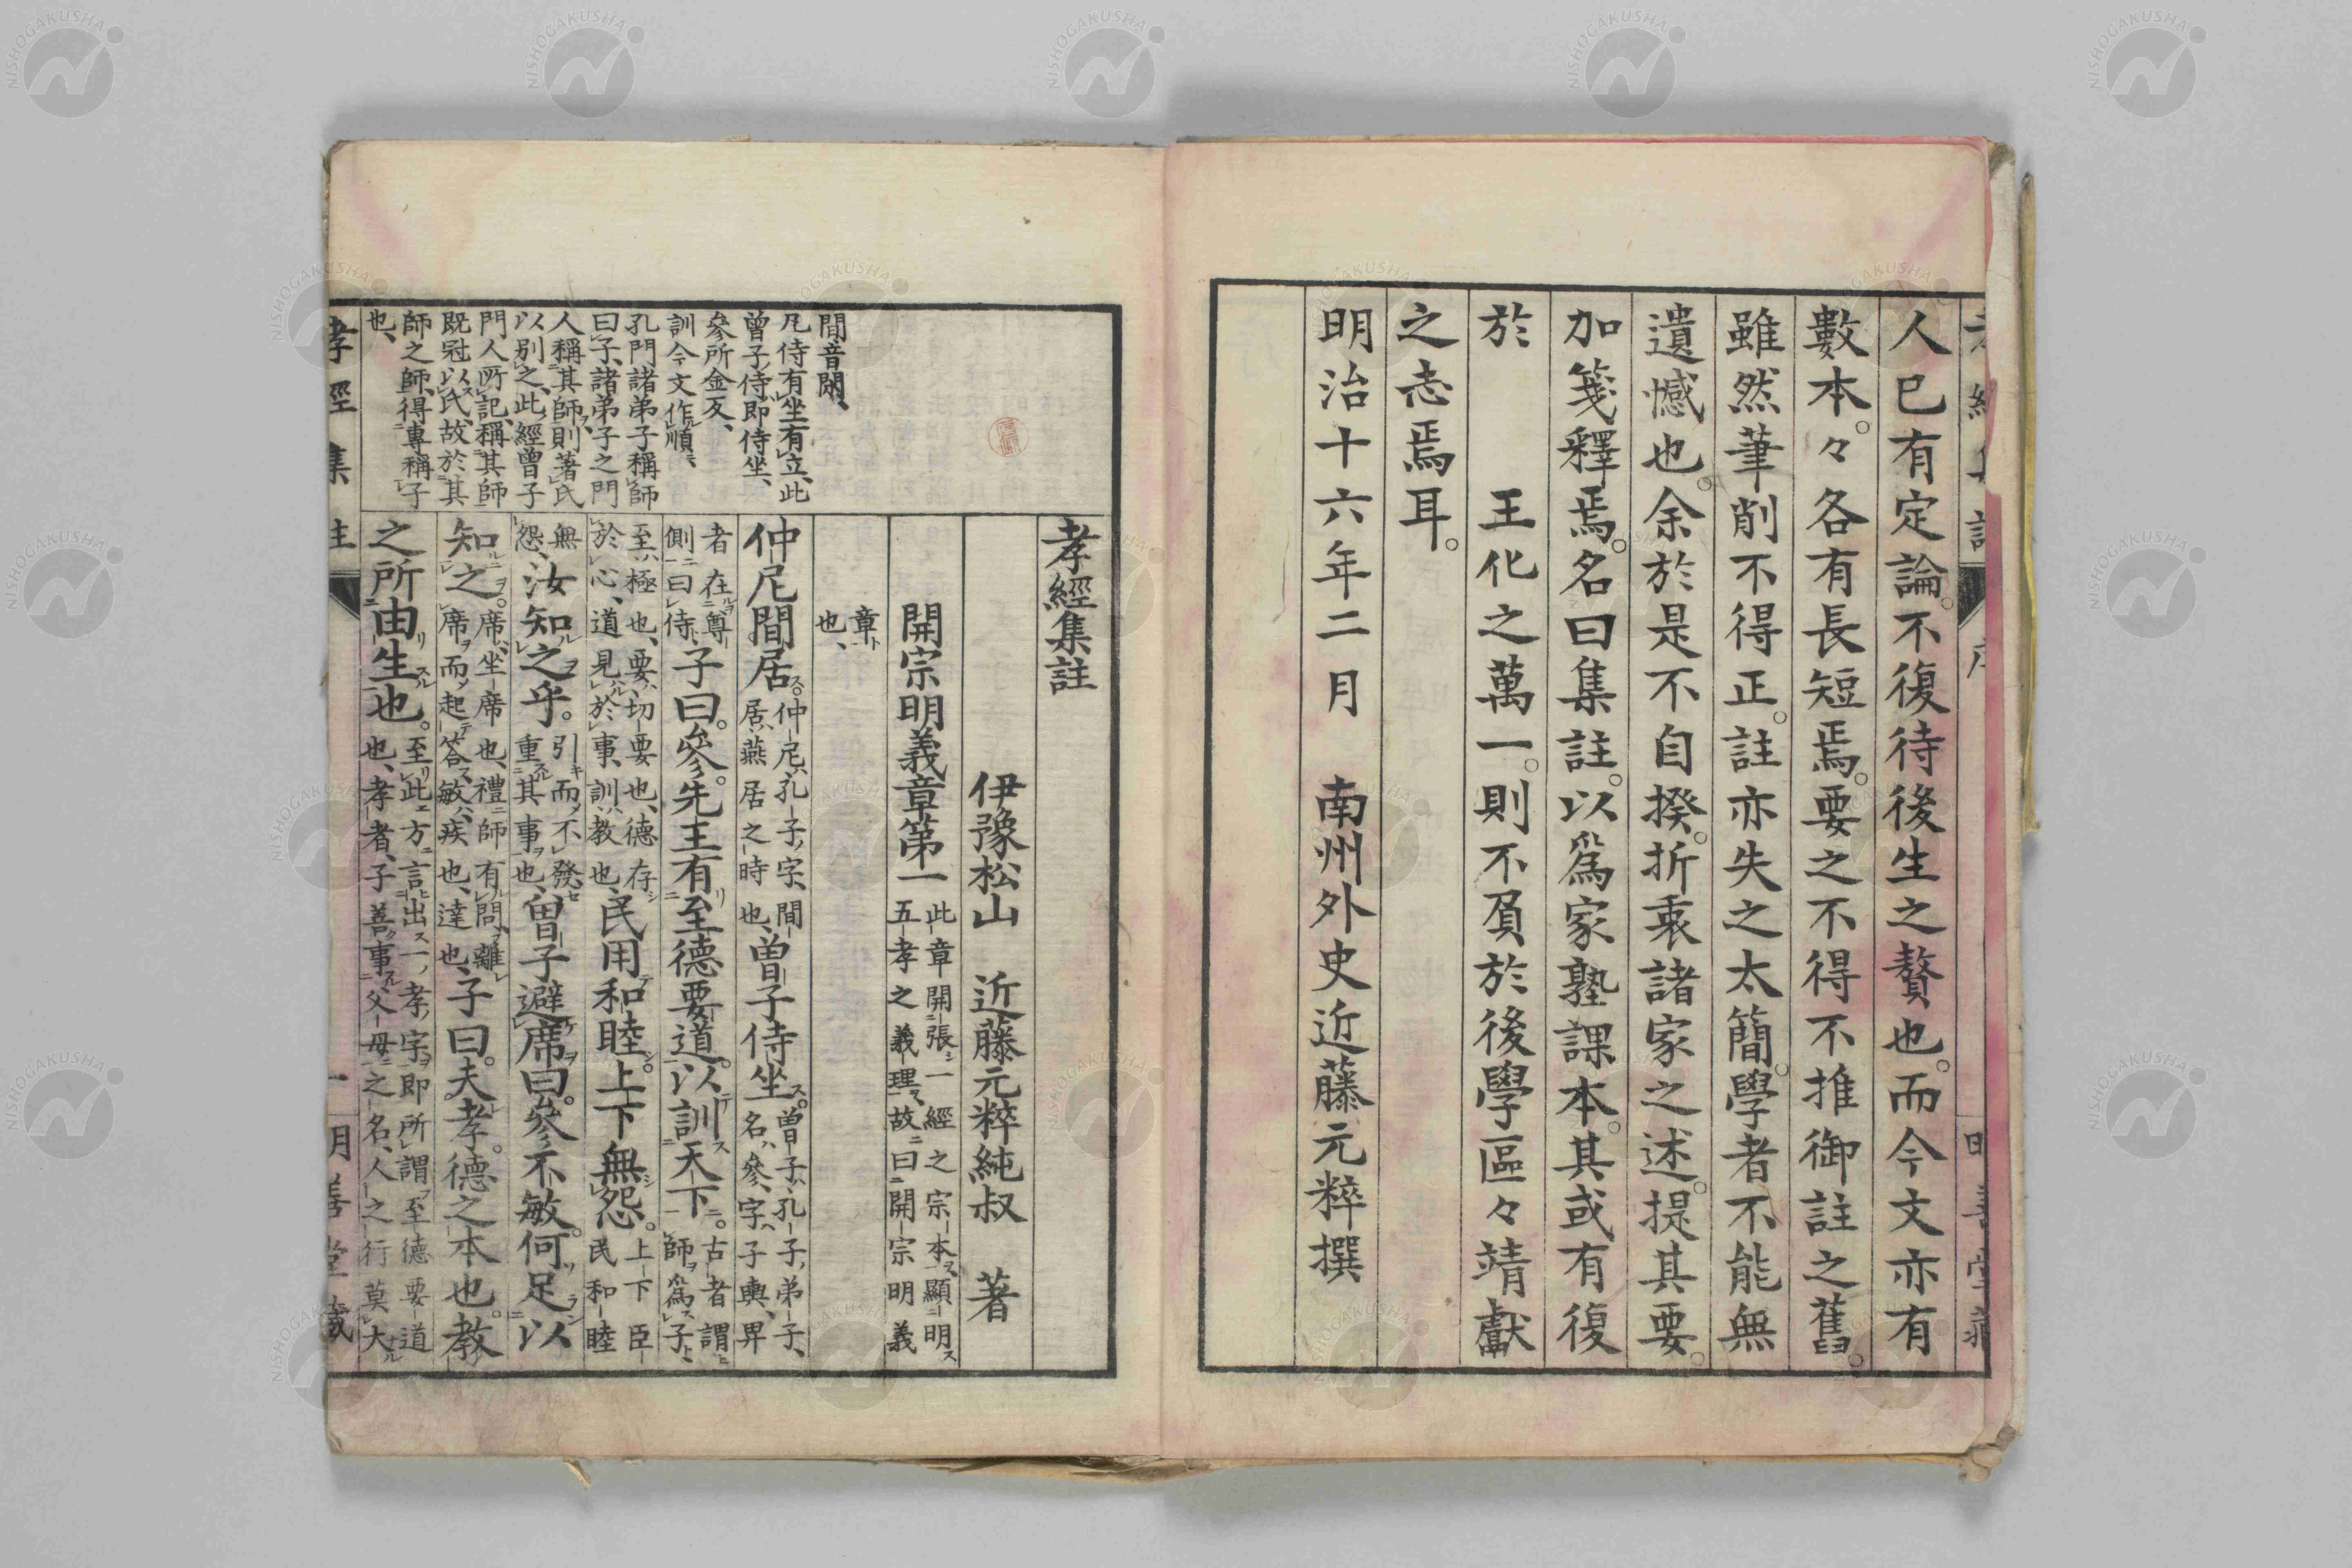 人已有定論。不復待後生之贅也。而今文亦有
數本。々各有長短焉。要之不得不推御註之舊。
雖然筆削不得正。註亦失之太簡。學者不能無
遺憾也。余於是不自揆。折衷諸家之述。提其要。
加箋釋焉。名曰集註。以爲家塾課本。其或有復
於　王化之萬一。則不負於後學區々靖獻
之志焉耳。
明治十六年二月　南州外史近藤元粹撰
孝經集註
伊豫松山　近藤元粹純叔　著
開宗明義章第一
此章開張一經之宗本、顯明
五孝之義理、故曰開宗明義
章
也、
仲尼間居。
仲尼孔子字、間
居燕居之時也、
曾子侍坐。
曾子孔子弟子、
名參、字子輿、卑
者在尊
側曰侍
子曰。參。先王有至德要道。以訓天下。
古者謂
師爲子、
至極也、要切要也、德存
於心、道見於事、訓教也、
民用和睦。上下無怨。
上下臣
民和睦
無
怨、
汝知之乎。
引而不發、
重其事也、
曾子避席曰。參不敏。何足以
知之。
席坐席也、禮師有問、離
席而起答、敏疾也、達也、
子曰。夫孝。德之本也。教
之所由生也。
至此方言出一孝字、即所謂至德要道
也、孝者、子善事父母之名、人之行莫大
間音閑、
凡侍有坐有立、此
曾子侍、即侍坐、
參所金反、
訓今文作順、
孔門諸弟子稱師
曰子、諸弟子之門
人稱其師、則著氏
以別之、此經曾子
門人所記、稱其師
既冠以氏、故於其
師之師、得專稱子
也、
孝經集註
一
明善堂藏
NISHOGAKUSHA